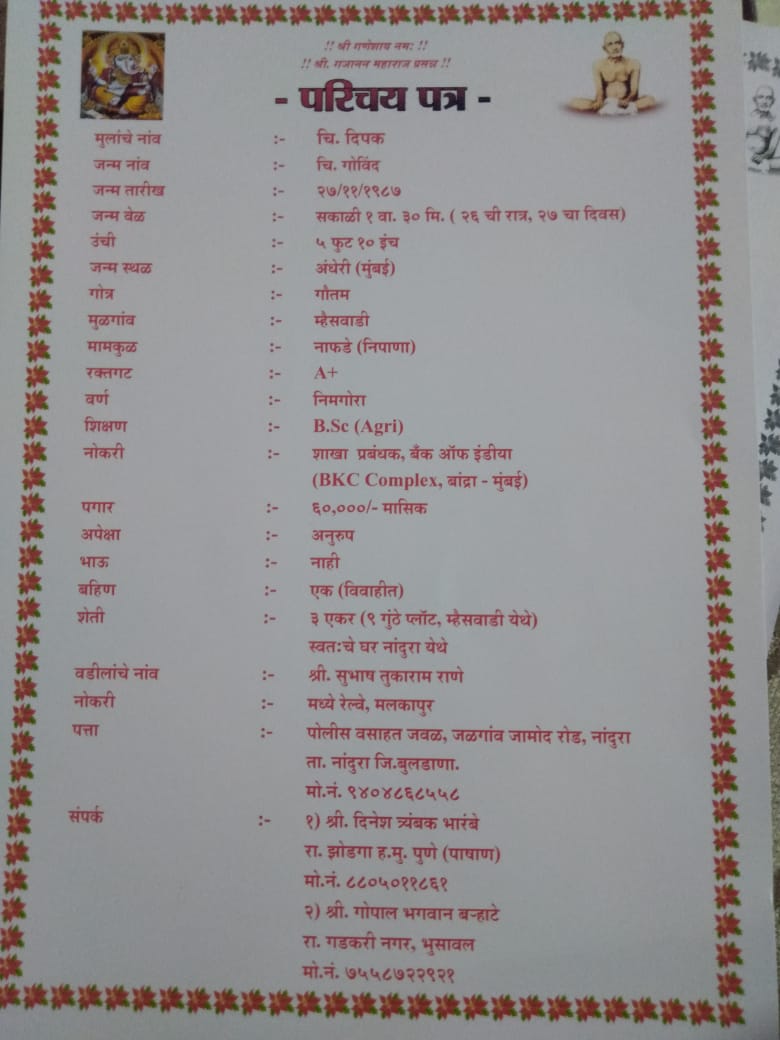 !! श्री गणेशाय नमः !!
!! श्री. गजानन महाराज प्रसन्न !!
- परिचय पत्र -
मुलांचे नांव :- चि. दिपक
जन्म नांव :- चि. गोविंद
जन्म तारीख :- २७/११/१९८७
जन्म वेळ :- सकाळी १ वा. ३० मि. ( २६ ची रात्र, २७ चा दिवस)
उंची :- ५ फुट १० इंच
जन्म स्थळ :- अंधेरी (मुंबई)
गोत्र :- गौतम
मुळगांव :- म्हैसवाडी
मामकुळ :- नाफडे (निपाणा)
रक्तगट :- A+
वर्ण :- निमगोरा
शिक्षण :- B.Sc (Agri)
नोकरी :- शाखा प्रबंधक, बँक ऑफ इंडीया
(BKC Complex, बांद्रा - मुंबई)
पगार :- ६०,०००/- मासिक
अपेक्षा :- अनुरुप
भाऊ :- नाही
बहिण :- एक (विवाहीत)
शेती :- ३ एकर (९ गुंठे प्लॉट, म्हैसवाडी येथे)
स्वतःचे घर नांदुरा येथे
वडीलांचे नांव :- श्री. सुभाष तुकाराम राणे
नोकरी :- मध्ये रेल्वे, मलकापुर
पत्ता :- पोलीस वसाहत जवळ, जळगांव जामोद रोड, नांदुरा
ता. नांदुरा जि.बुलडाणा.
मो.नं. ९४०४८६८५५८
संपर्क :- १) श्री. दिनेश त्र्यंबक भारंबे
रा. झोडगा ह.मु. पुणे (पाषाण)
मो.नं. ८८०५०११८६१
२) श्री. गोपाल भगवान बऱ्हाटे
रा. गडकरी नगर, भुसावल
मो.नं. ७५५८७२२९२१